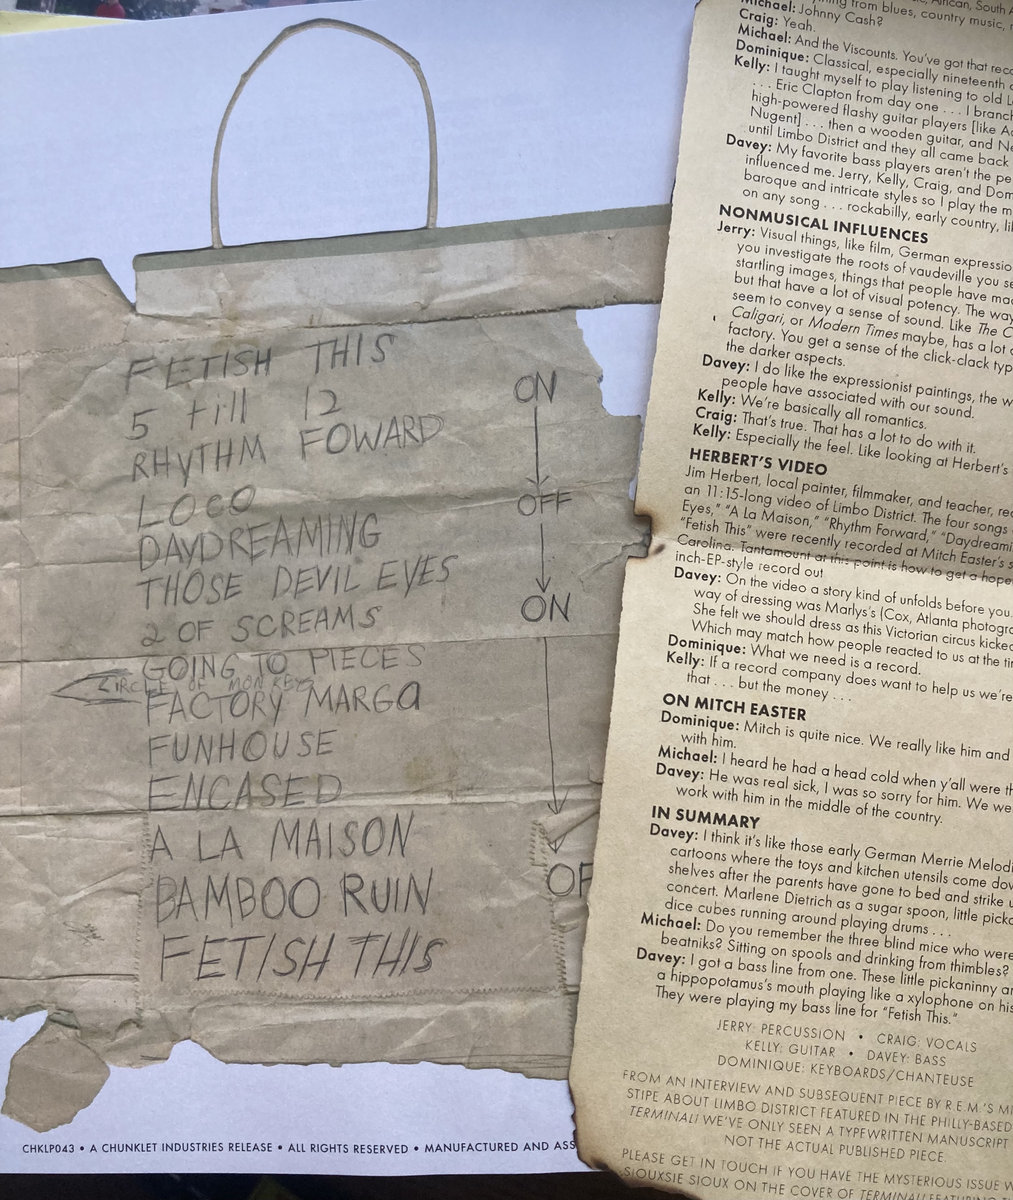 FETISH THIS
5 till 12
RHYTHM FOWARD
LOCO
DAYDREAMING
THOSE DEVIL EYES
2 OF SCREAMS
GOING TO PIECES
CIRCLE OF MONKEYS
FACTORY MARGA
FUNHOUSE
ENCASED
A LA MAISON
BAMBOO RUIN
FETISH THIS
ON
OFF
ON
OF
CHKLP043 • A CHUNKLET INDUSTRIES RELEASE • ALL RIGHTS RESERVED • MANUFACTURED AND ASS
from blues, country music,
Michael: Johnny Cash?
Craig: Yeah.
Michael: And the Viscounts. You've got that
Dominique: Classical, especially nineteenth
Kelly: I taught myself to play listening to old
. . . Eric Clapton from day one . . . I
high-powered flashy guitar players [like
Nugent] . . . then a wooden guitar, and
until Limbo District and they all came back
Davey: My favorite bass players aren't the
influenced me. Jerry, Kelly, Craig, and
baroque and intricate styles so I play the
on any song . . . rockabilly, early country,
NONMUSICAL INFLUENCES
Jerry: Visual things, like film, German
you investigate the roots of vaudeville you
startling images, things that people have
but that have a lot of visual potency. The
seem to convey a sense of sound. Like The
Caligari, or Modern Times maybe, has a lot
factory. You get a sense of the click-clack
the darker aspects.
Davey: I do like the expressionist paintings, the
people have associated with our sound.
Kelly: We're basically all romantics.
Craig: That's true. That has a lot to do with it.
Kelly: Especially the feel. Like looking at Herbert's
HERBERT'S VIDEO
Jim Herbert, local painter, filmmaker, and teacher,
an 11:15-long video of Limbo District. The four songs
Eyes," "A La Maison," "Rhythm Forward," "Daydreami
"Fetish This" were recently recorded at Mitch Easter's
Carolina. Tantamount at this point is how to get a
inch-EP-style record out
Davey: On the video a story kind of unfolds before you.
way of dressing was Marlys's (Cox, Atlanta
She felt we should dress as this Victorian circus kicked
Which may match how people reacted to us at the
Dominique: What we need is a record.
Kelly: If a record company does want to help us we're
that . . . but the money . . .
ON MITCH EASTER
Dominique: Mitch is quite nice. We really like him and
with him.
Michael: I heard he had a head cold when y'all were
Davey: He was real sick, I was so sorry for him. We
work with him in the middle of the country.
IN SUMMARY
Davey: I think it's like those early German Merrie Melodi
cartoons where the toys and kitchen utensils come
shelves after the parents have gone to bed and strike
concert. Marlene Dietrich as a sugar spoon, little
dice cubes running around playing drums . . .
Michael: Do you remember the three blind mice who were
beatniks? Sitting on spools and drinking from thimbles?
Davey: I got a bass line from one. These little pickaninny
a hippopotamus's mouth playing like a xylophone on his
They were playing my bass line for "Fetish This."
JERRY: PERCUSSION • CRAIG: VOCALS
KELLY: GUITAR • DAVEY: BASS
DOMINIQUE: KEYBOARDS/CHANTEUSE
FROM AN INTERVIEW AND SUBSEQUENT PIECE BY R.E.M.'S MI
STIPE ABOUT LIMBO DISTRICT FEATURED IN THE PHILLY-BASED
TERMINAL! WE'VE ONLY SEEN A TYPEWRITTEN MANUSCRIPT
NOT THE ACTUAL PUBLISHED PIECE.
PLEASE GET IN TOUCH IF YOU HAVE THE MYSTERIOUS ISSUE
SIOUXSIE SIOUX ON THE COVER OF TERMINAL!